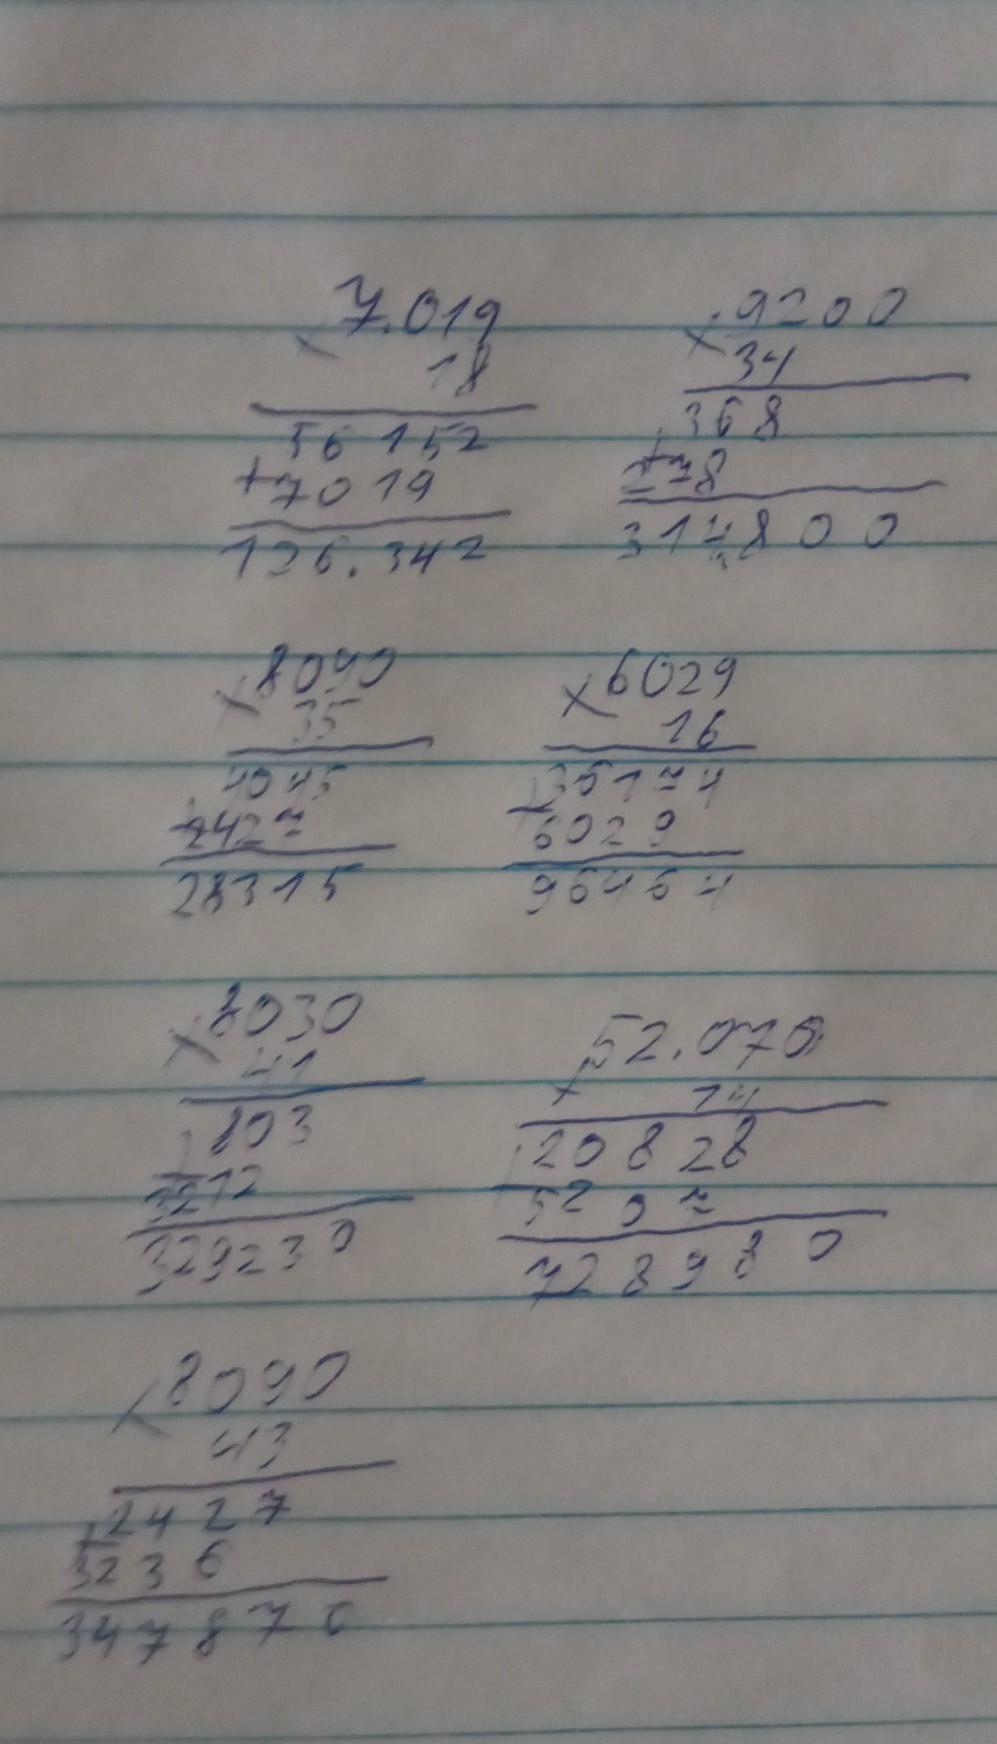 7.019
× 18
56152
+7019
126.342
× 9200
34
368
+278
314800
× 8090
35
4045
+2427
28315
× 6029
16
+36174
6029
96464
× 8030
41
803
+3212
329230
× 52.070
14
+20828
5207
728980
× 8090
43
+2427
3236
347870